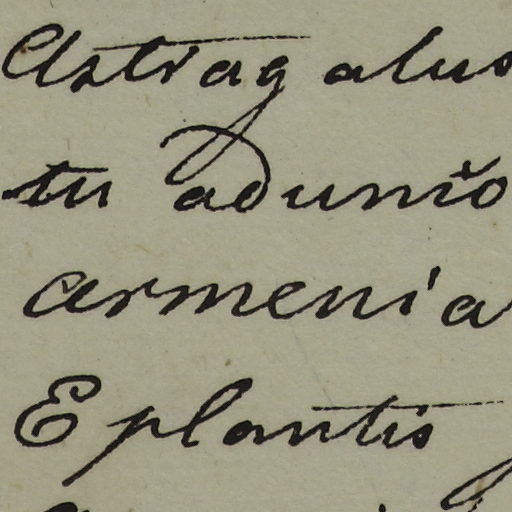 Astragalus
tu adunĭo
armenia
E plantis